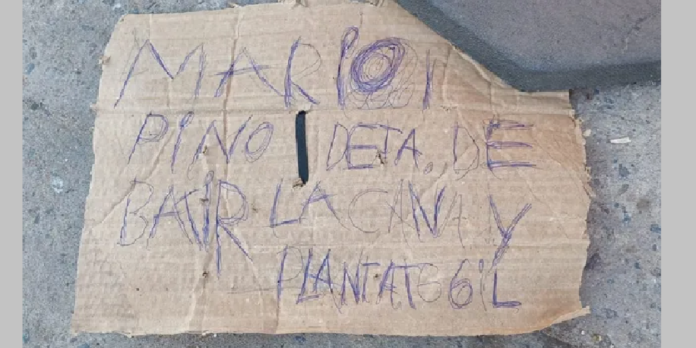 MARIO
PINO DEJA DE
BAIR LA CANA Y
PLANTATE GIL